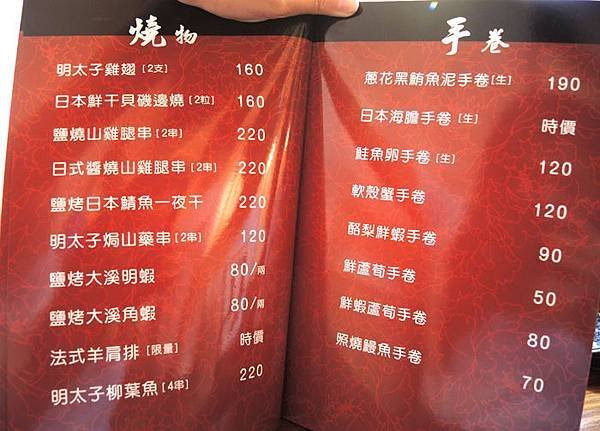 燒物
明太子雞翅[2支] 160
日本鮮干貝磯邊燒[2粒] 160
鹽燒山雞腿串[2串] 220
日式醬燒山雞腿串[2串] 220
鹽烤日本鯖魚一夜干 220
明太子焗山藥串[2串] 120
鹽烤大溪明蝦 80/兩
鹽烤大溪角蝦 80/兩
法式羊肩排[限量] 時價
明太子柳葉魚[4串] 220
手卷
蔥花黑鮪魚泥手卷[生] 190
日本海膽手卷[生] 時價
鮭魚卵手卷[生] 120
軟殼蟹手卷 120
酪梨鮮蝦手卷 90
鮮蘆荀手卷 50
鮮蝦蘆荀手卷 80
照燒鰻魚手卷 70